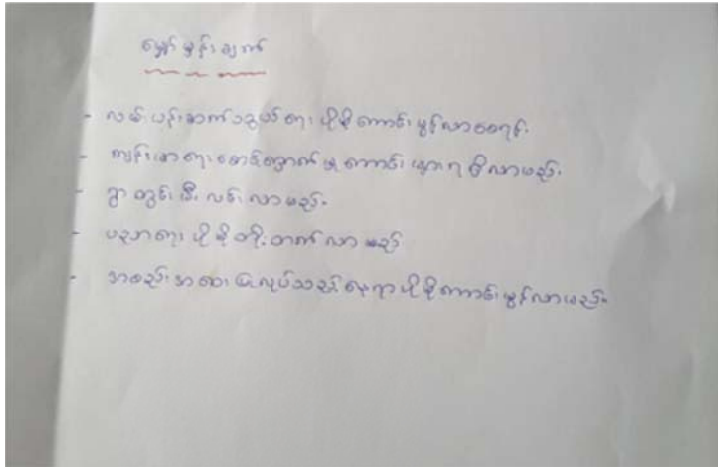 မျှော်မှန်းချက်
- လမ်းပန်းဆက်သွယ်ရေး ပိုမိုကောင်းမွန်လာစေရင်း
- ကျန်းမာရေးစောင့်ရှောက်မှု ကောင်းများရရှိလာမည်။
- ရွာတွင်းမီးလင်းလာမည်။
- ပညာရေး ပိုမိုတိုးတက်လာမည်
- အစည်းအဝေးပြုလုပ်သည့်နေရာ ပိုမိုကောင်းမွန်လာမည်။